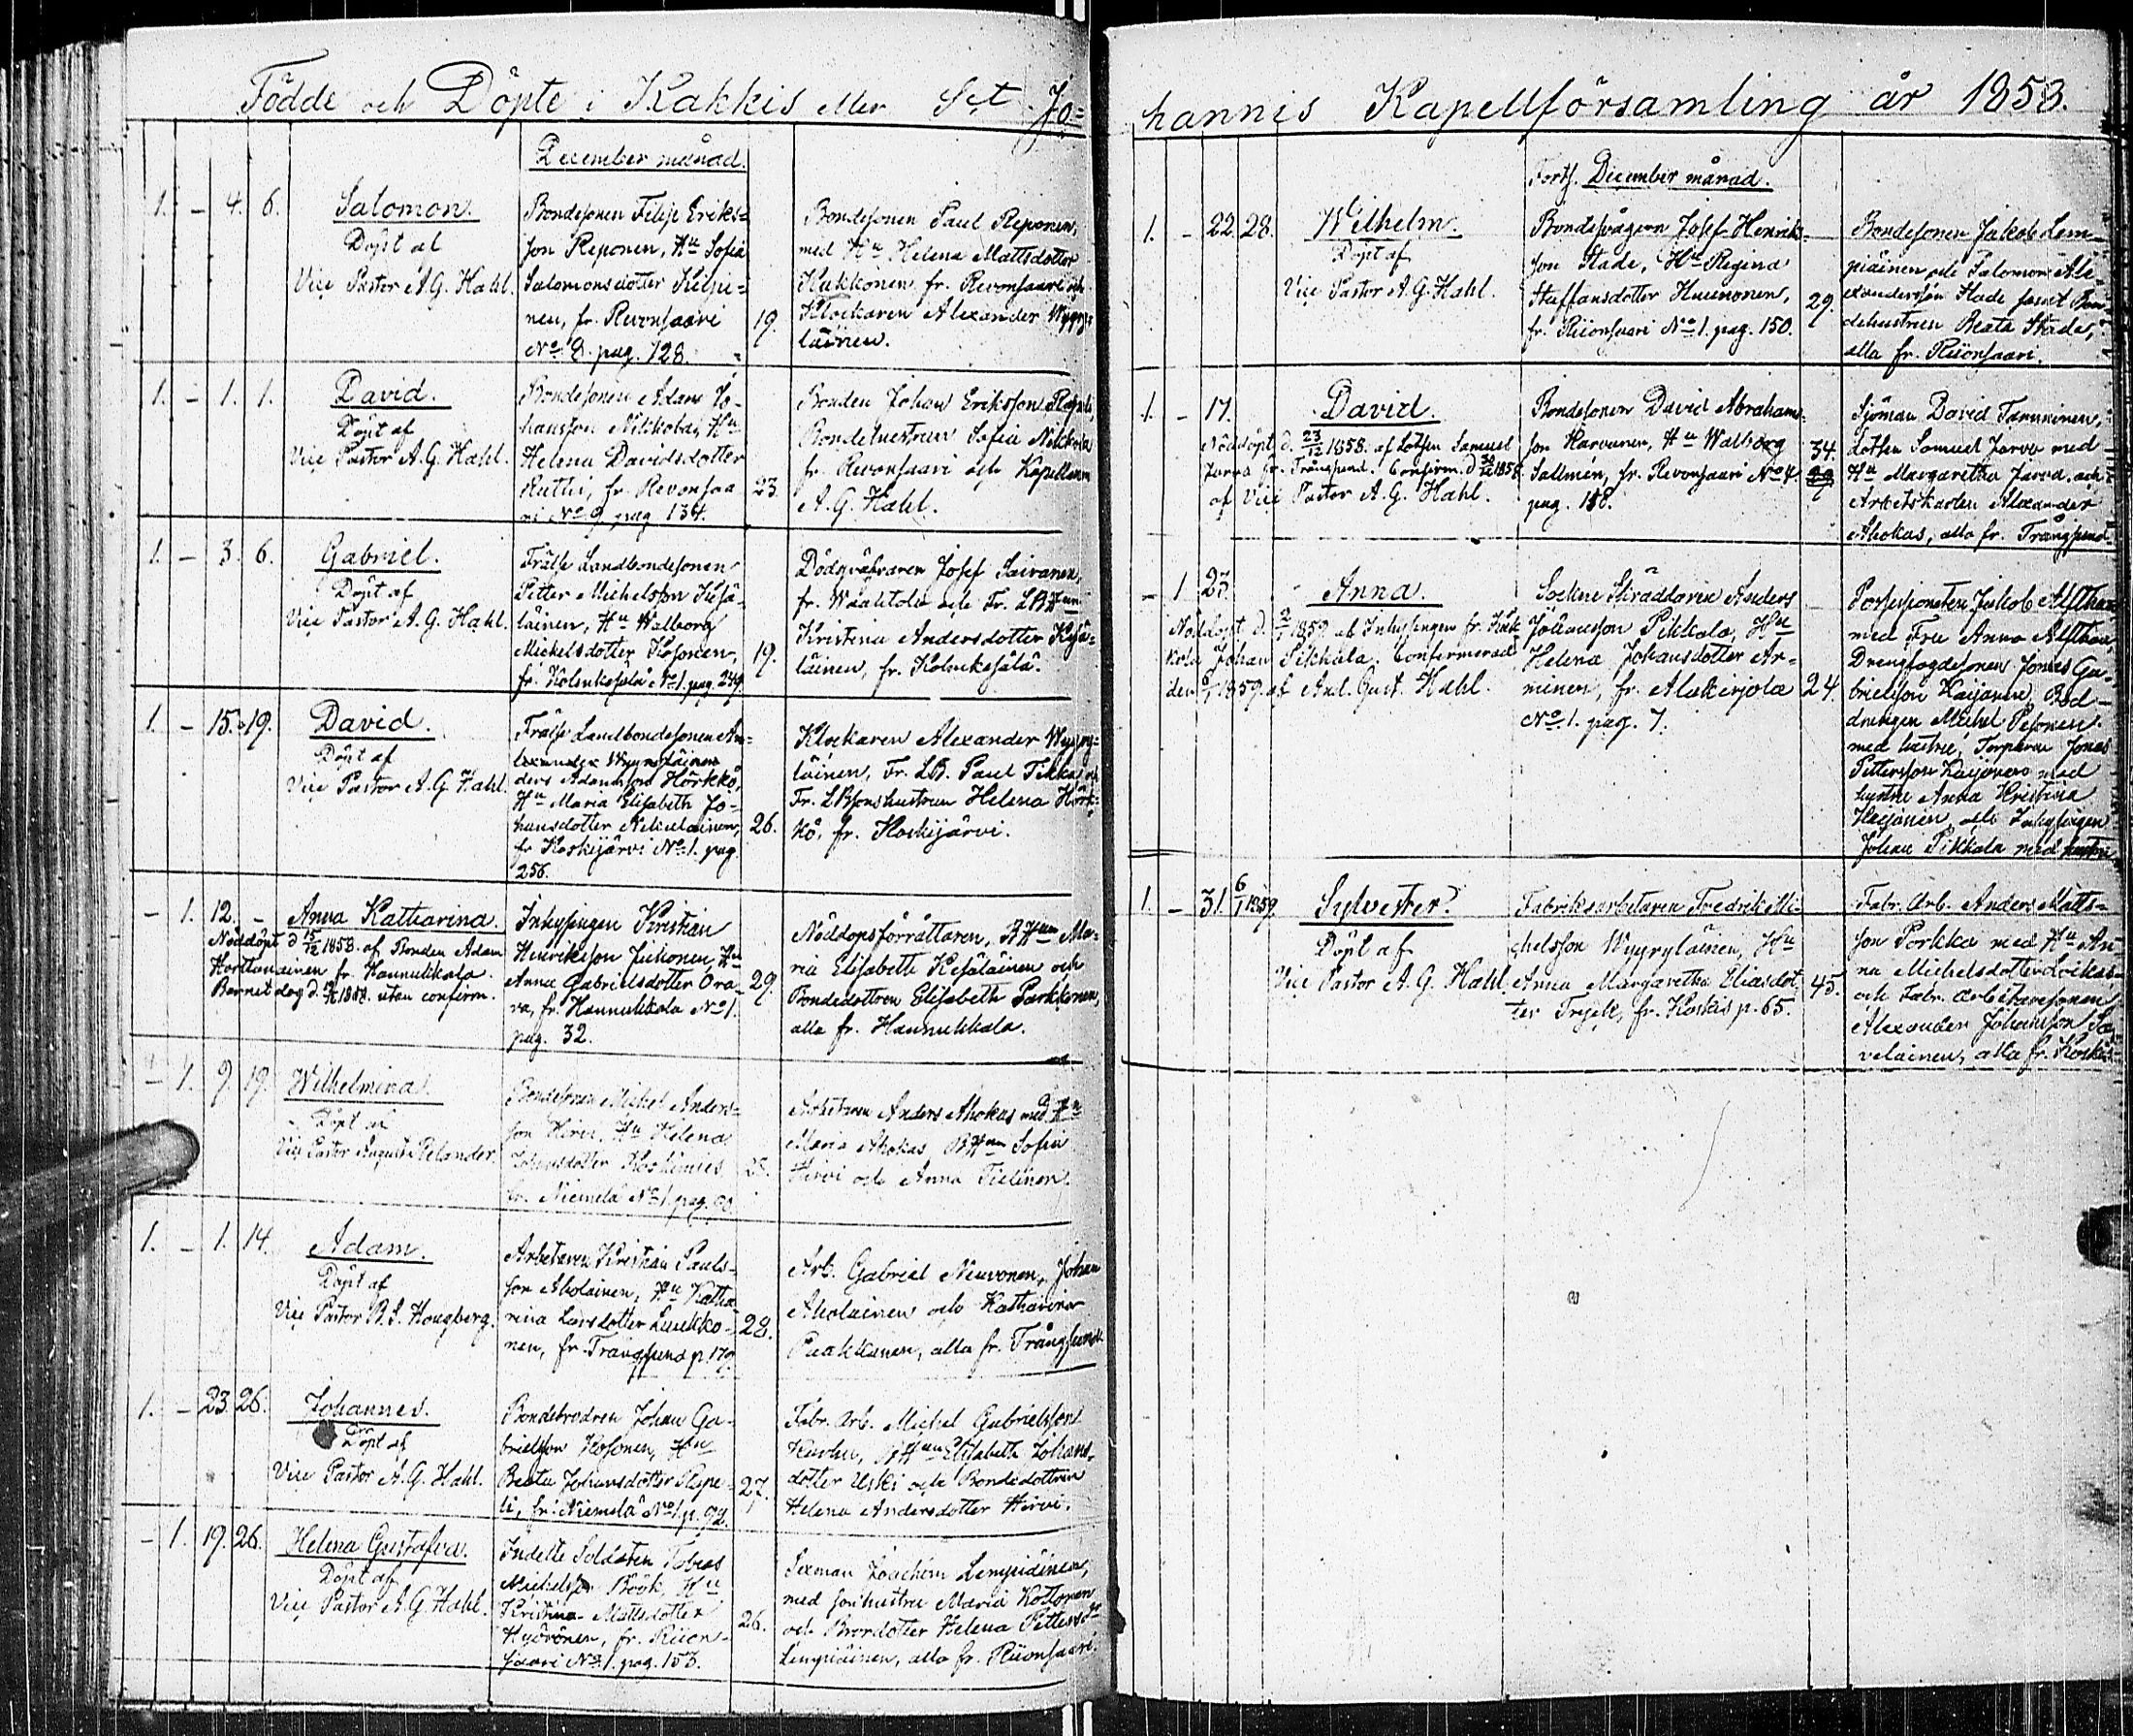 Födde och Döpte i Kakkis eller Sct Jo=
December månad.
1. - 4. 6. Salomon.
Döpt af
Vice Pastor A. G. Hahl.
Bondesonen Filip Eriks=
son Reponen, Hu Sofia
Salomonsdotter Kilpi=
nen, fr. Revonsaari
No 8. pag. 128.
19.
Bondesonen Paul Reponen,
med Hu Helena Mattsdotter
Kukkonen fr. Revonsaari och
Klockaren Alexander Wyyry=
läinen.
1. - 1. 1. David.
Döpt af
Vice Pastor A. G. Hahl.
Bondesonen Adam Jo-
hansson Nikkola, Hu
Helena Davidsdotter
Ruthi, fr. Revonsaa
ri No 9. pag. 134.
23.
Bonden Johan Eriksson
Bondehustrun Sofia Nikkola
fr. Revonsaari och Kapellanen
A. G. Hahl.
1. - 3. 6. Gabriel.
Döpt af
Vice Pastor A. G. Hahl.
Frälse Landbondesonen
Petter Michelsson Kesä-
läinen, Hu Walborg
Mickelsdotter Kosonen,
fr. Kolmikesälä No 1. pag. 249.
19.
Dödgräfvaren Josef Saivanen,
fr. Waahtola och Fr. LBHun
Kristina Andersdotter Kesä-
läinen, fr. Kolmikesälä.
1. - 15. 19. David.
Döpt af
Vice Pastor A. G. Hahl.
Frälse Landbondesonen An=
ders Adamsson Hörkkö,
Hu Maria Elisabeth Jo-
hansdotter Nikulainen,
fr Koskijärvi No 1. pag.
256.
26.
Klockaren Alexander Wyyry=
läinen, Fr. LB. Paul Tikka och
Fr. LBsonshustrun Helena Hörk-
kö, fr. Koskijärvi.
- 1. 12. - Anna Katharina.
Nöddöpt d 15/12 1858. af Bonden Adam
fr. Hannukkala.
Barnet dog d. 1858. utan confirm.
Inhysingen Kristian
Henriksson Juhonen, Hu
Anna Gabrielsdotter Ora-
va, fr. Hannukkala No 1.
pag. 32.
29.
Nöddopsförrättaren, BHun Ma-
ria Elisabeth Kesäläinen och
Bondedottren Elisabeth Parkkonen,
alla fr. Hannukkala.
- 1. 9. 19. Wilhelmina.
Döpt af
Vice Pastor August Relander.
Bondesonen Michel Anders-
son Hirvi, Hu Helena
Johansdotter Koskimies
fr. Niemelä No 1. pag. 90.
25.
Anders Ahokas med Hu
Maria Ahokas, BHun Sofia
Hirvi och Anna Tielinen.
1. - 1. 14. Adam.
Döpt af
Vice Pastor R. I. Hougberg.
Arbetaren Kristian Pauls-
son Aholainen, Hu Katha-
rina Larsdotter Luukko-
nen, fr. Trångsund p. 170
28.
Arb. Gabriel Neuvonen, Johan
Aholainen och Katharina
Paakkanen, alla fr. Trångsund
1. - 23. 26. Johannes.
Döpt af
Vice Pastor A. G. Hahl.
Bondebrodren Johan Ga-
brielsson Kosonen, Hu
Beata Johansdotter Rape-
li, fr. Niemelä No 1. p. 92.
27.
Fabr. arb. Michel Gabrielsson
Karhu, BHun Elisabeth Johans-
dotter Uski och Bondedottren
Helena Andersdotter Hirvi.
- 1. 19. 26. Helena Gustafva.
Döpt af
Vice Pastor A. G. Hahl.
Indelte Soldaten Tobias
Michelsson Böök, Hu
Kristina Mattsdotter
Hyövönen, fr. Riion-
saari No 1. pag. 153.
26.
Sexman Joachim Lempiäinen,
med sonhustru Maria Kottonen
och Brordotter Helena Pettersdr
Lempiäinen, alla fr. Riionsaari.
hannis Kapellförsamling år 1858.
Forts. December månad.
1. - 22. 28. Wilhelm.
Döpt af
Vice Pastor A. G. Hahl.
Bondesvågern Josef Henriks-
son Stade, Hu Regina
Staffansdotter Huunonen,
fr. Riionsaari No 1. pag. 150.
29.
Bondesonen Jakob Lem-
piäinen och Salomon Ale-
xandersson Stade samt Bon-
dehustrun Beata Stade,
alla fr. Riionsaari.
1. - 17. David.
Nöddöpt d. 23/12 1858. af Lotsen Samuel
Jarva fr. Trångsund. Confirm. d 30/12 1858
af Vice Pastor A. G. Hahl.
Bondesonen David Abrahams-
son Harvanen, Hu Walborg
Sallmén, fr. Revonsaari No 4.
pag. 118.
34.
29
Sjöman David Tamminen,
Lotsen Samuel Jarva med
Hu Margaretha Jarva, och
Arbetskarlen Alexander
Ahokas, alla fr. Trångsund.
- 1. 23. Anna.
Nöddöpt d. 2/1 1859. af Inhysingen fr. Kak-
kola Johan Pikkala. Confirmerad
den 6/1 1859 af And. Gust. Hahl.
Sockne Skräddaren Anders
Johansson Pikkala, Hu
Helena Johansdotter Ar-
minen, fr. Alakirjola
No 1. pag. 7.
24.
Possessionaten Jakob Alfthan
med Fru Anna Alfthan,
Drengfogdesonen Jonas Ga-
brielsson Kaijanen, Bod-
drengen Michel Pesonen
med hustru, Torparen Jonas
Pettersson Kaijanen med
hustru Anna Kristina
Kaijanen, och Inhysingen
Johan Pikkala med hustru
1. - 31. 6/1 1859. Sylvester.
Döpt af
Vice Pastor A. G. Hahl
Fabriksarbetaren Fredrik Mi-
chelsson Wyyryläinen, Hu
Anna Margaretha Eliasdot-
ter Trygg, fr. Koskis p. 65.
45.
Fabr. Arb. Anders Matts-
son Porkka med Hu An-
na Michelsdotter Loikas,
och Fabr. arbetaresonen
Alexander Johansson Sa-
velainen, alla fr. Koskis